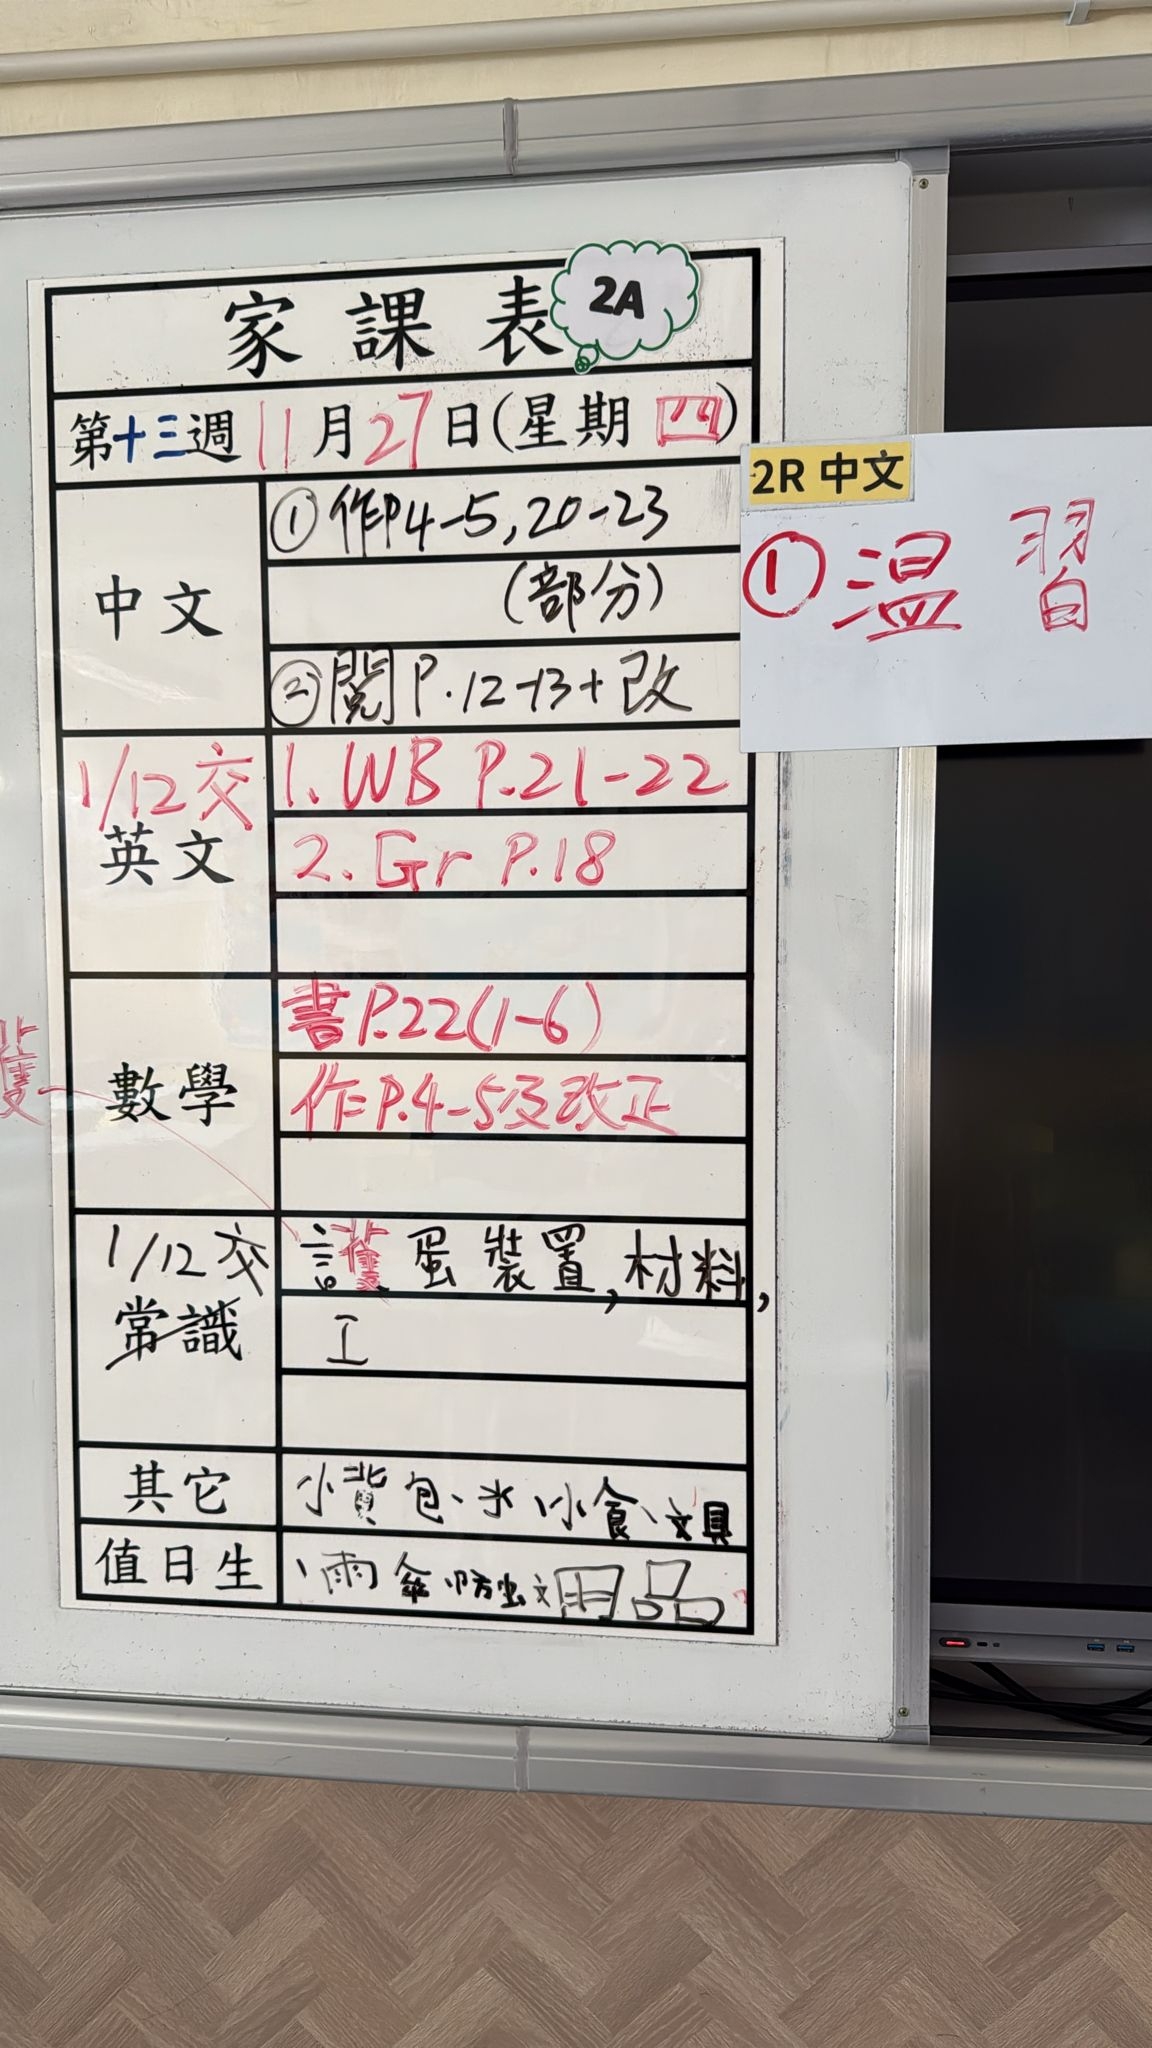 家課表
2A
第十三週 11月27日(星期四)
中文
①作P4-5,20-23
(部分)
②閱P.12-13+改
2R 中文
①溫習
1/12交
英文
1. WB P.21-22
2. Gr P.18
數學
書P.22(1-6)
作P.4-5及改正
1/12交
常識
護蛋裝置,材料,
工
其它
小背包、水、小食、文具
值日生
、雨傘、防虫文用品